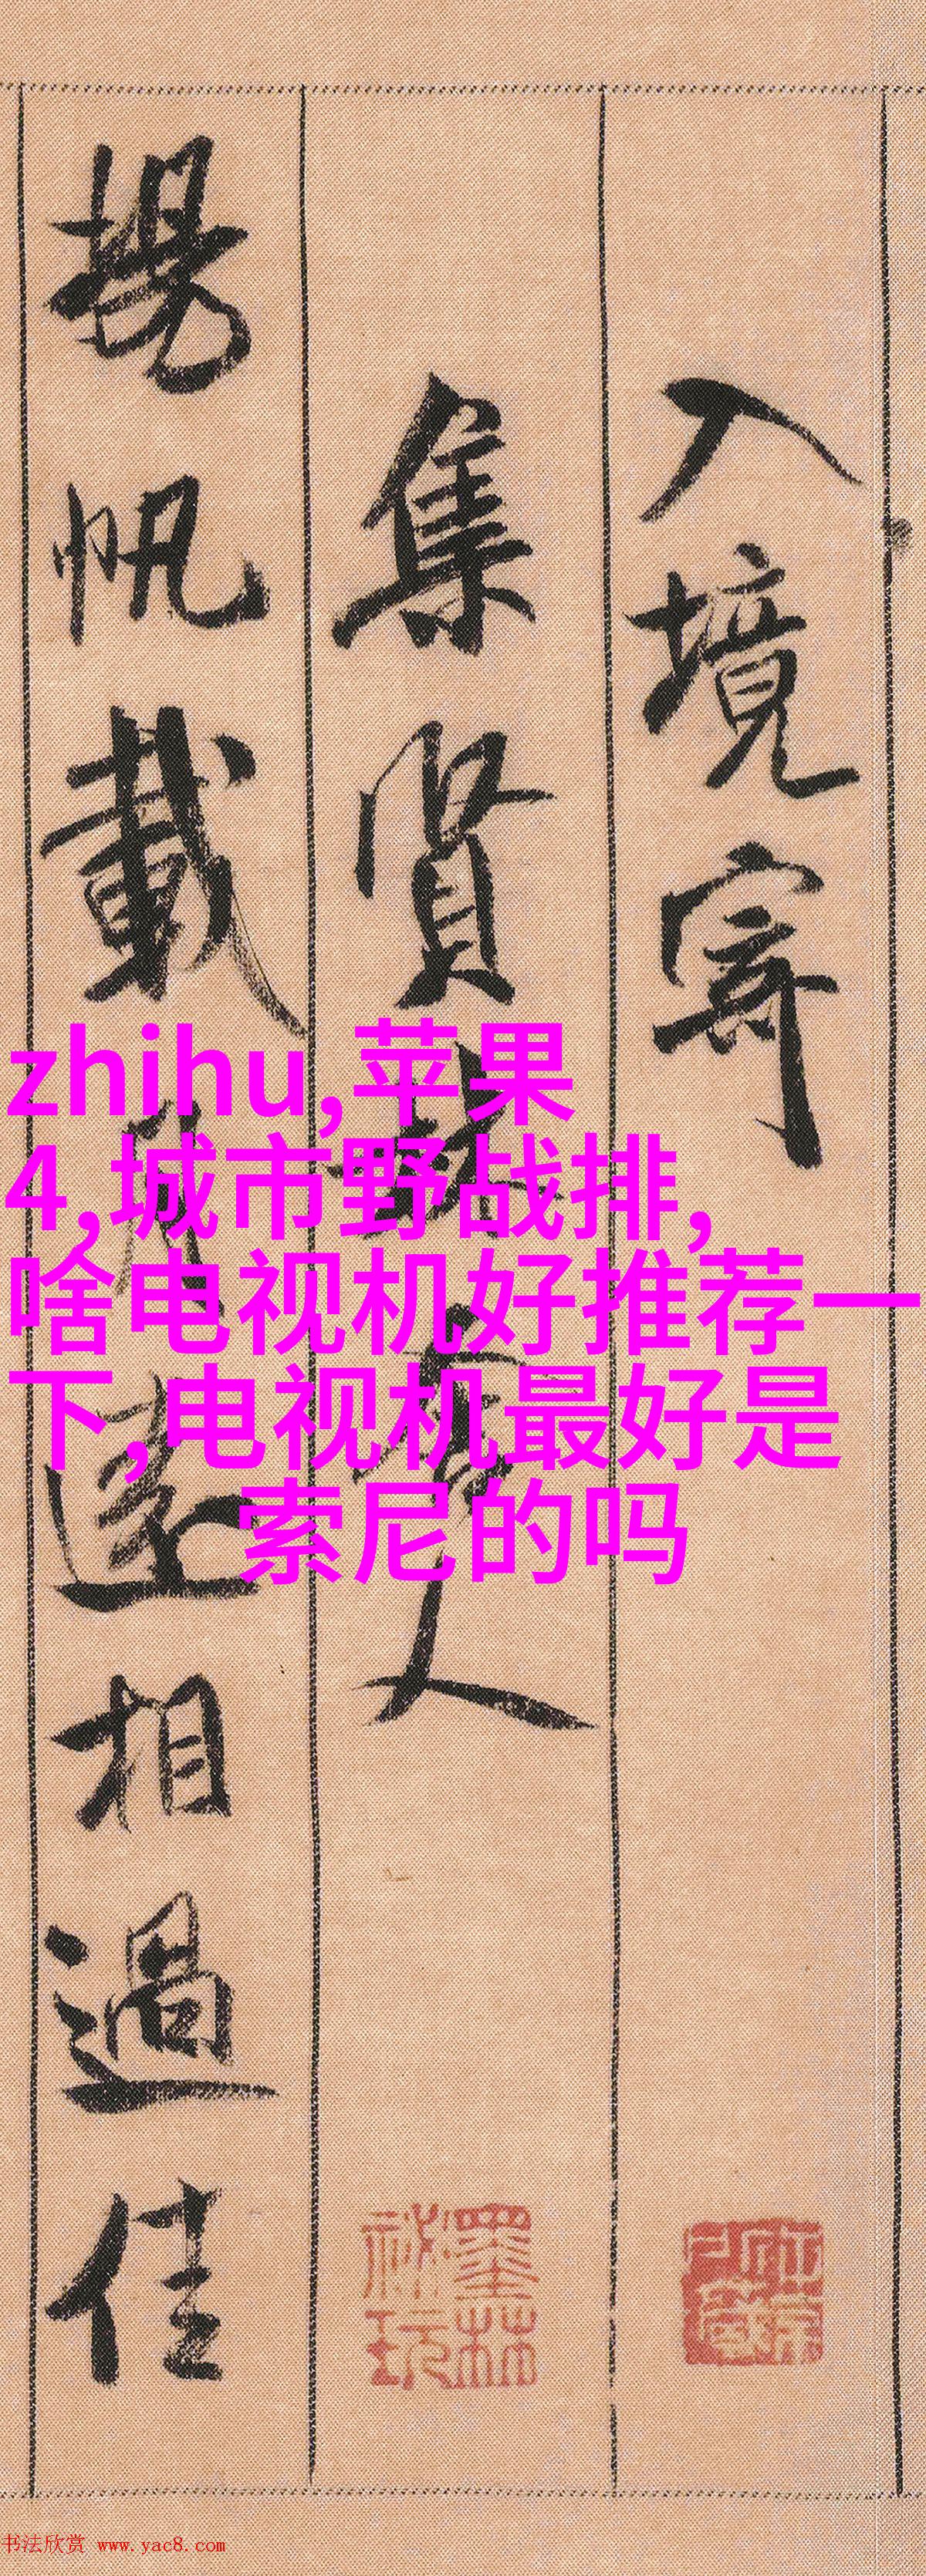 入境寄
集賢林舍人
揚帆載月遠相過佳
zhihu,苹果
4,城市野战排,
啥电视机好推荐一
下,电视机最好是
索尼的吗
墨林
祕玩
书法欣赏 www.yac8.com